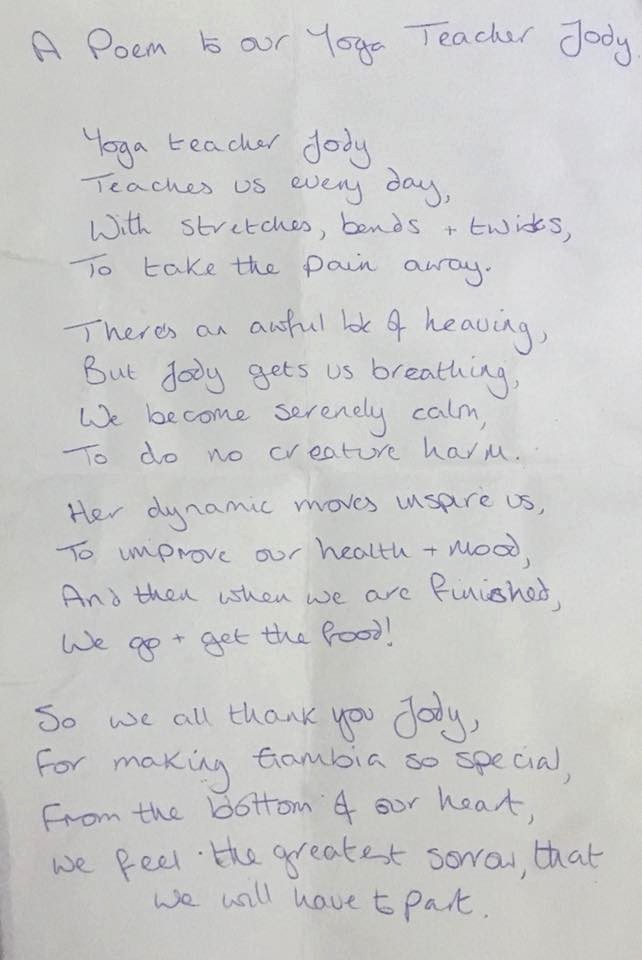 A Poem to our Yoga Teacher Jody.
Yoga teacher Jody
Teaches us every day,
With stretches, bends + twists,
To take the pain away.
There's an awful lot of heaving,
But Jody gets us breathing,
We become serenely calm,
To do no creature harm.
Her dynamic moves inspire us,
To improve our health + mood,
And then when we are finished,
We go + get the food!
So we all thank you Jody,
For making Gambia so special,
From the bottom of our heart,
We feel the greatest sorrow, that
We will have to part.